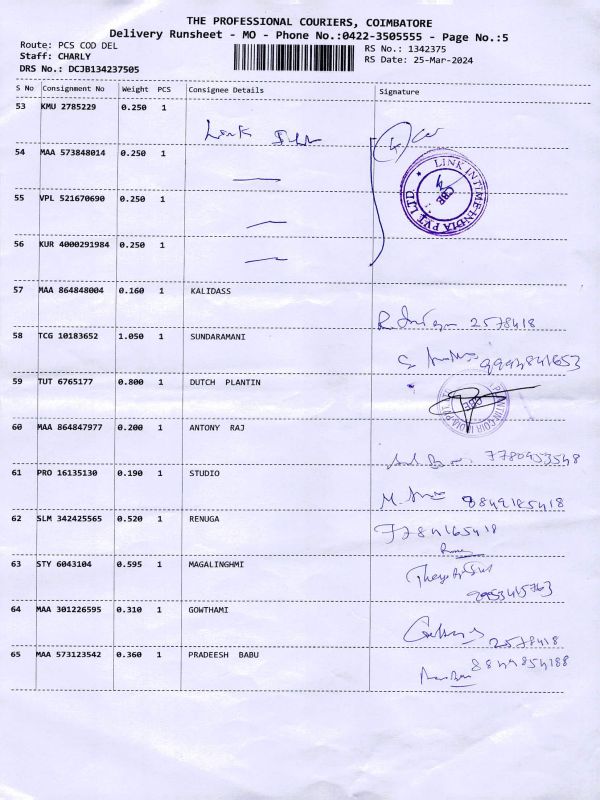 THE PROFESSIONAL COURIERS, COIMBATORE
Delivery Runsheet - MO - Phone No.:0422-3505555 - Page No.:5
Route: PCS COD DEL
RS No.: 1342375
Staff: CHARLY
RS Date: 25-Mar-2024
DRS No.: DCJB134237505
S No Consignment No Weight PCS Consignee Details Signature
53 KMU 2785229 0.250 1
Link
54 MAA 573848014 0.250 1
LINK INTIME INDIA PVT LTD
CBE
55 VPL 521670690 0.250 1
56 KUR 4000291984 0.250 1
57 MAA 864848004 0.160 1 KALIDASS
2578418
58 TCG 10183652 1.050 1 SUNDARAMANI
59 TUT 6765177 0.800 1 DUTCH PLANTIN
60 MAA 864847977 0.200 1 ANTONY RAJ
7780953548
61 PRO 16135130 0.190 1 STUDIO
8849185418
62 SLM 342425565 0.520 1 RENUGA
7784165418
63 STY 6043104 0.595 1 MAGALINGHMI
64 MAA 301226595 0.310 1 GOWTHAMI
2578418
65 MAA 573123542 0.360 1 PRADEESH BABU
8849854188